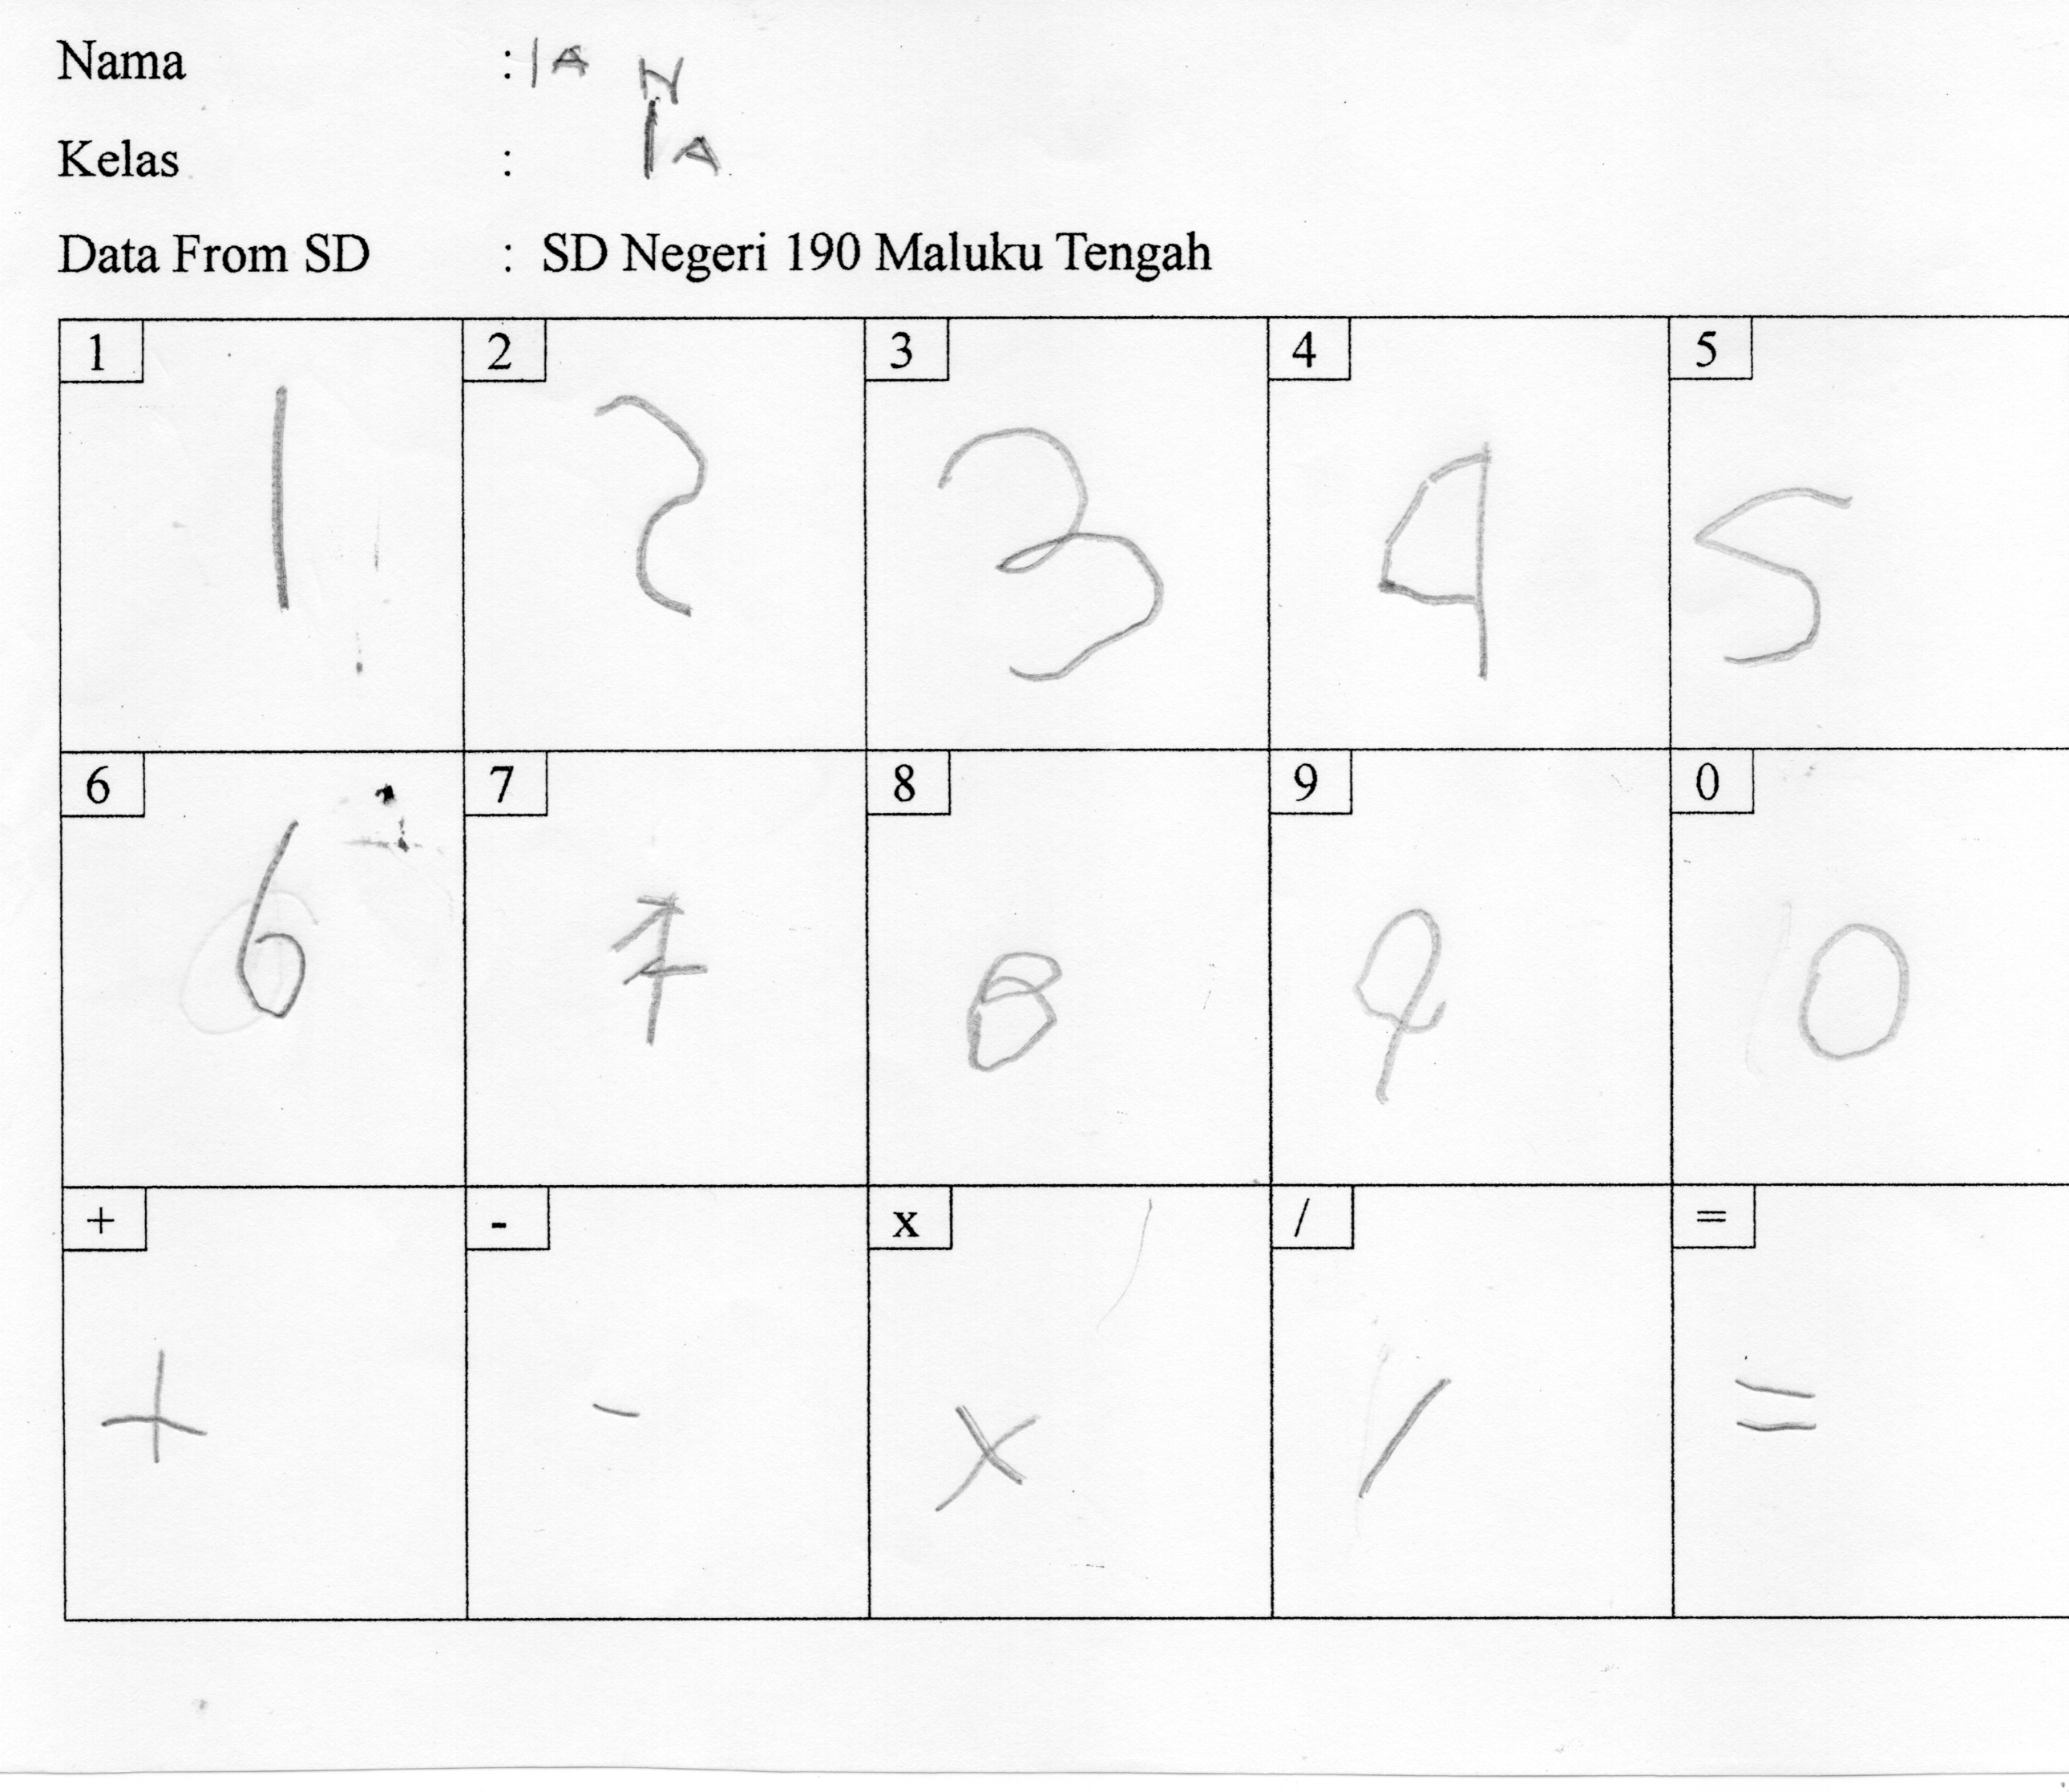 Nama : IAN
Kelas : 1A
Data From SD : SD Negeri 190 Maluku Tengah
1 2 3 4 5
1 2 3 4 5
6 7 8 9 0
6 7 8 9 0
+ - x / =
+ - x / =